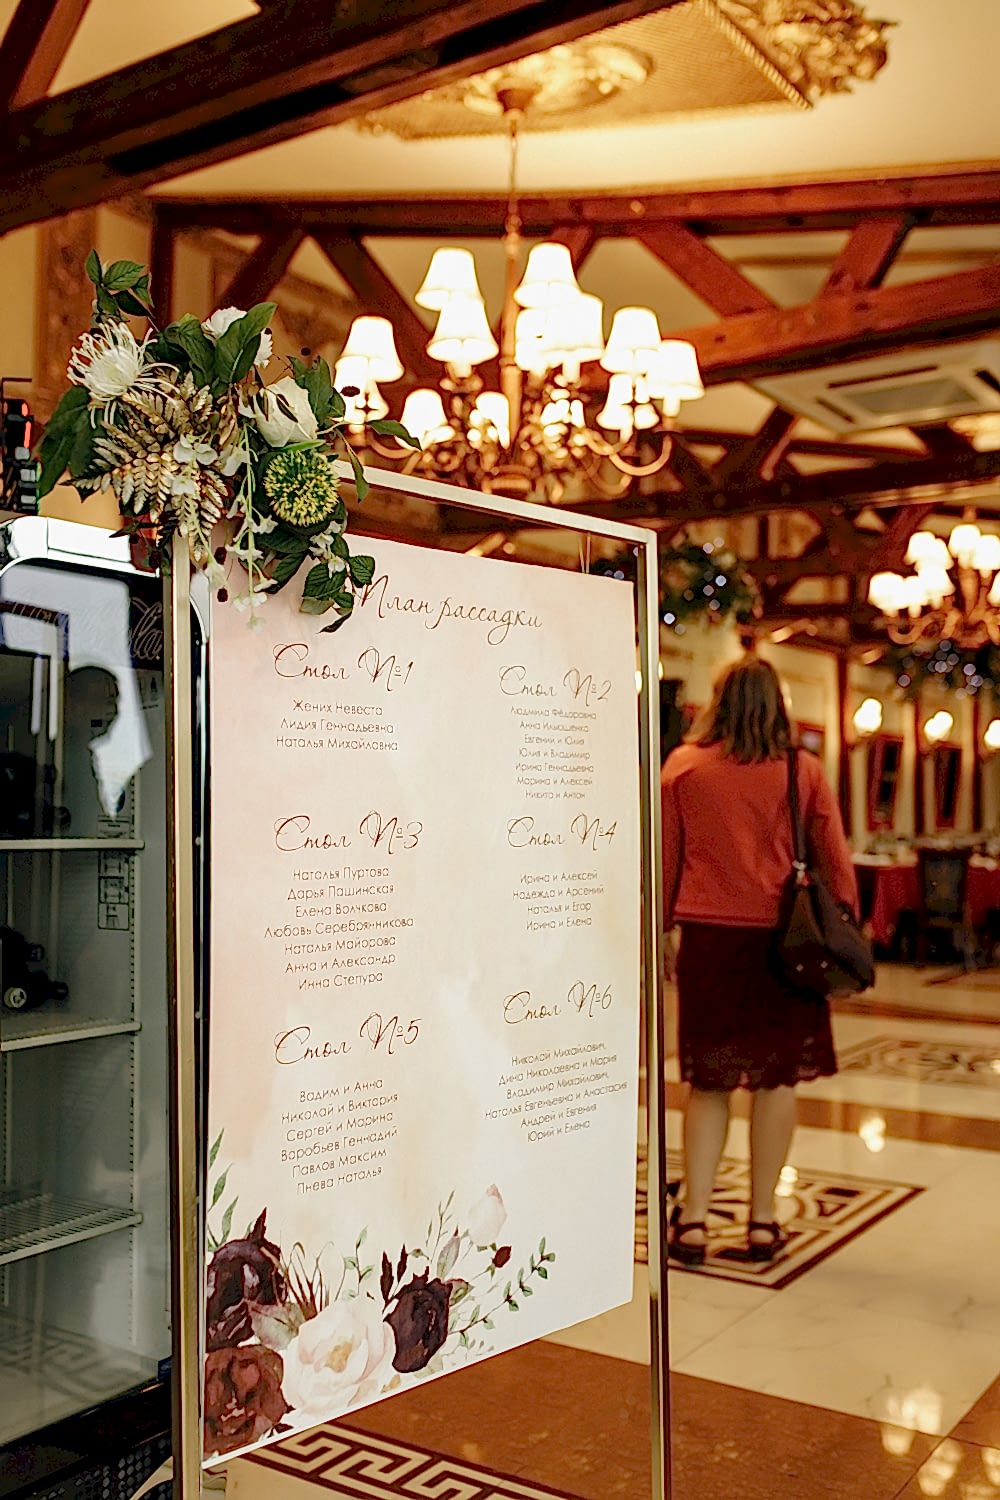 План рассадки
Стол №1
Жених Невеста
Лидия Геннадьевна
Наталья Михайловна
Стол №2
Людмила Фёдоровна
Анна Ильюшенко
Евгений и Юлия
Юлия и Владимир
Ирина Геннадьевна
Марина и Алексей
Никита и Антон
Стол №3
Наталья Пуртова
Дарья Пашинская
Елена Волчкова
Любовь Серебрянникова
Наталья Майорова
Анна и Александр
Инна Степура
Стол №4
Ирина и Алексей
Надежда и Арсений
Наталья и Егор
Ирина и Елена
Стол №5
Вадим и Анна
Николай и Виктория
Сергей и Марина
Воробьев Геннадий
Павлов Максим
Пнева Наталья
Стол №6
Николай Михайлович,
Дина Николаевна и Мария
Владимир Михайлович,
Наталья Евгеньевна и Анастасия
Андрей и Евгения
Юрий и Елена